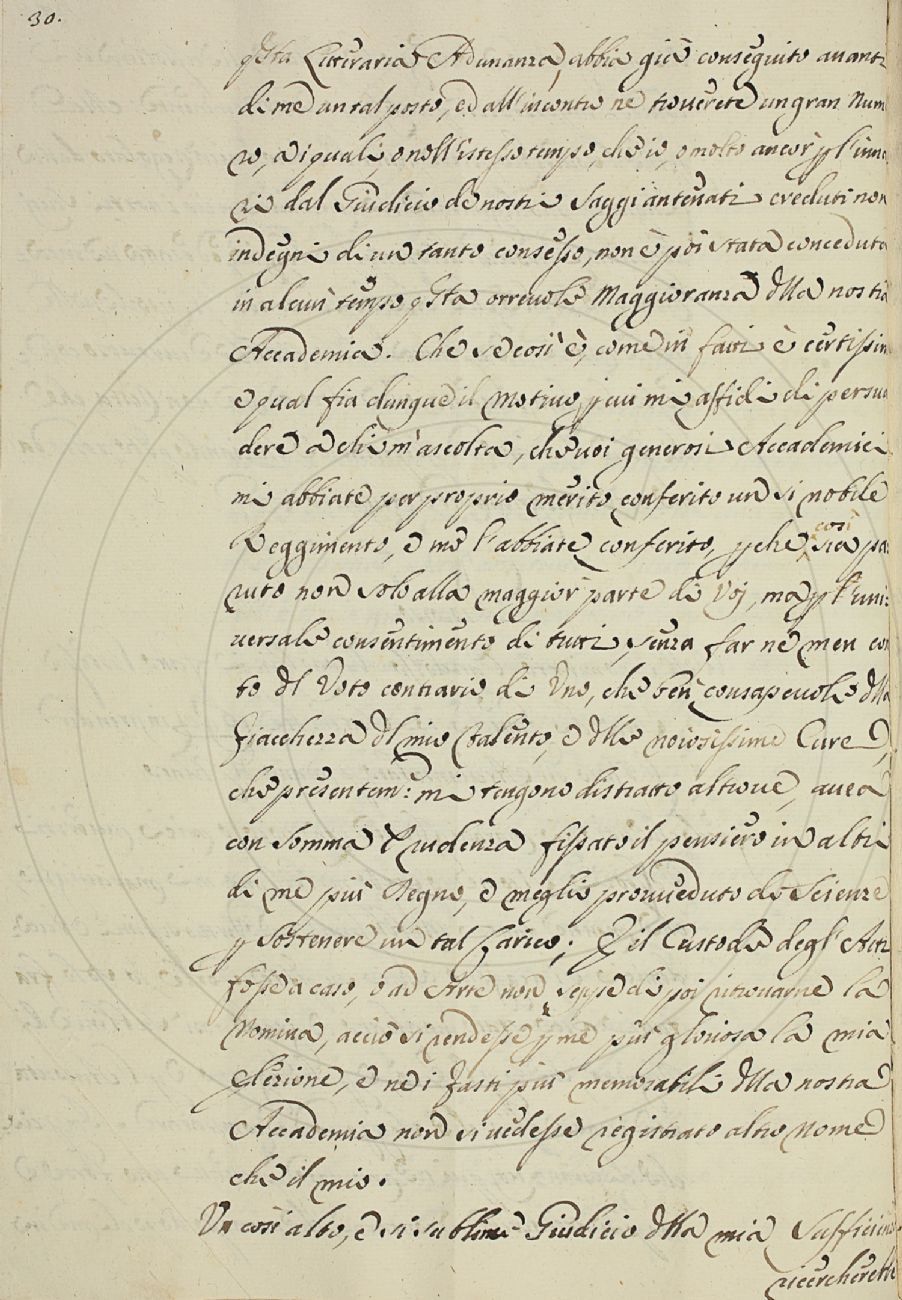 30.
qsta Litteraria Adunanza, abbia già conseguito avanti
di me un tal posto, ed all'incontro ne troverete un gran Num
ro, a i quali, o nell'istesso tempo, che io, o molto ancor p l'inna
zi dal Giudicio de nostri Saggi antenati creduti non
indegni di un tanto consesso, non è poi stata conceduta
in alcun tempo qsta orrevole Maggioranza dlla nostra
Accademia. Che se così è, come in fatti è certissim
e qual fia dunque il motivo, p cui mi affidi di persua
dere a chi m'ascolta, che voi generosi Accademici
mi abbiate per proprio merito conferito un sì nobile
Reggimento, e me l'abbiate conferito, pche, così sia pa
ruto non solo alla maggior parte di Voj, ma p l'uni:
versale consentimento di tutti, senza far ne men con
to dl Voto contrario di Uno, che ben consapevole dlla
fiacchezza dl mio Talento, e dlle noiosissime Cure,
che presentem: mi tengono distratto altrove, avea
con somma Prudenza fissato il pensiero in altri
di me più Degno, e meglio provveduto di Scienze
p sostenere un tal Carico; E il Custode degl'Atti
fosse a caso, o ad Arte non seppe di poi ritrovarne la
Nomina, acciò si rendesse p me più gloriosa la mia
Elezione, e ne i fasti più memorabili dlla nostra
Accademia non si vedesse registrato altro Nome
che il mio.
Un così alto, e sì sublime Giudicio dlla mia Sufficien
ricercherebbe